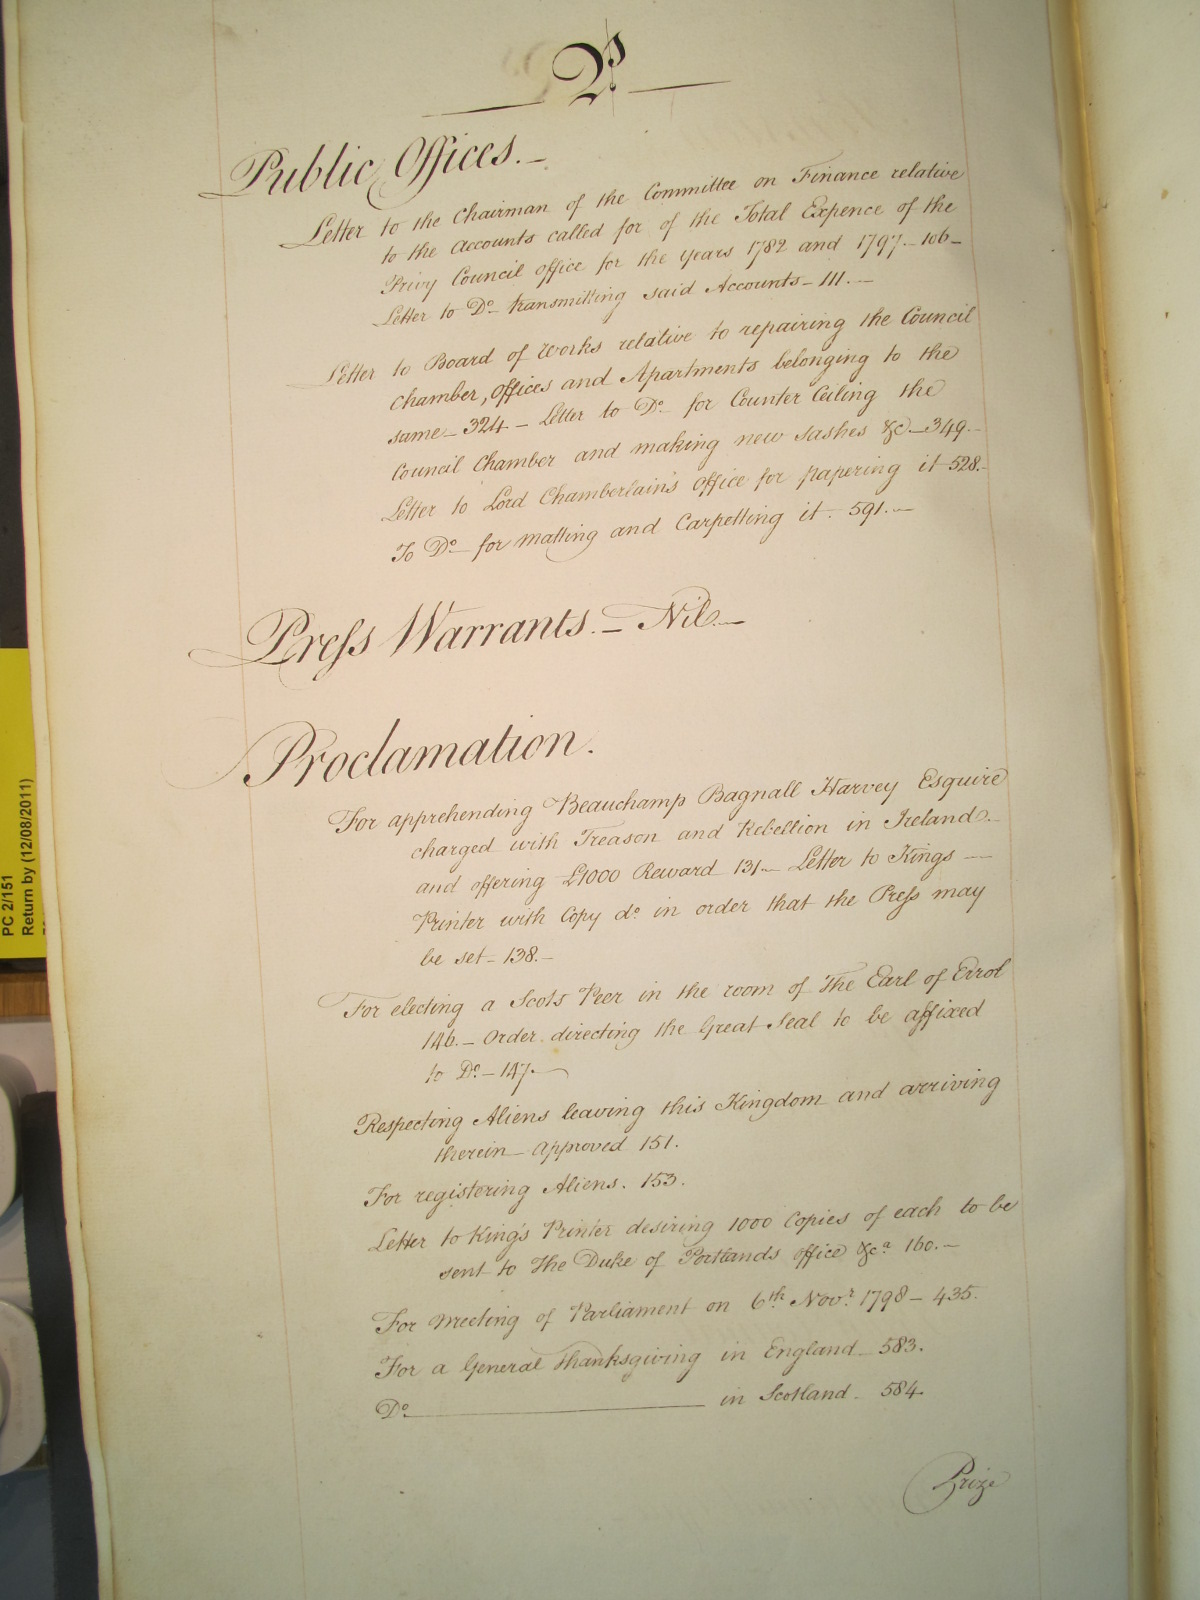 P
Public Offices. –
Letter to the Chairman of the Committee on Finance relative
to the Accounts called for of the Total Expence of the
Privy Council office for the years 1782 and 1797. – 106 –
Letter to Do. transmitting said Accounts – 111. –
Letter to Board of Works relative to repairing the Council
Chamber, Offices and Apartments belonging to the
same – 324 – Letter to Do. for Counter Ceiling the
Council Chamber and making new Sashes &c – 349. –
Letter to Lord Chamberlain's Office for papering it – 528. –
To Do. – for matting and Carpetting it – 591. –
Press Warrants. – Nil. –
Proclamation.
For apprehending Beauchamp Bagnall Harvey Esquire
charged with Treason and Rebellion in Ireland –
and offering £1000 Reward 131. – Letter to Kings –
Printer with Copy do. in order that the Press may
be set – 138. –
For electing a Scots Peer in the room of The Earl of Errol
146. – Order directing the Great Seal to be affixed
to Do. – 147. –
Respecting Aliens leaving this Kingdom and arriving
therein – Approved 151.
For registering Aliens. 153.
Letter to King's Printer desiring 1000 Copies of each to be
sent to The Duke of Portlands office &ca. 160. –
For Meeting of Parliament on 6th Novr. 1798 – 435.
For a General Thanksgiving in England – 583.
Do. ———— in Scotland – 584.
Prize
PC 2/151
Return by (12/08/2011)